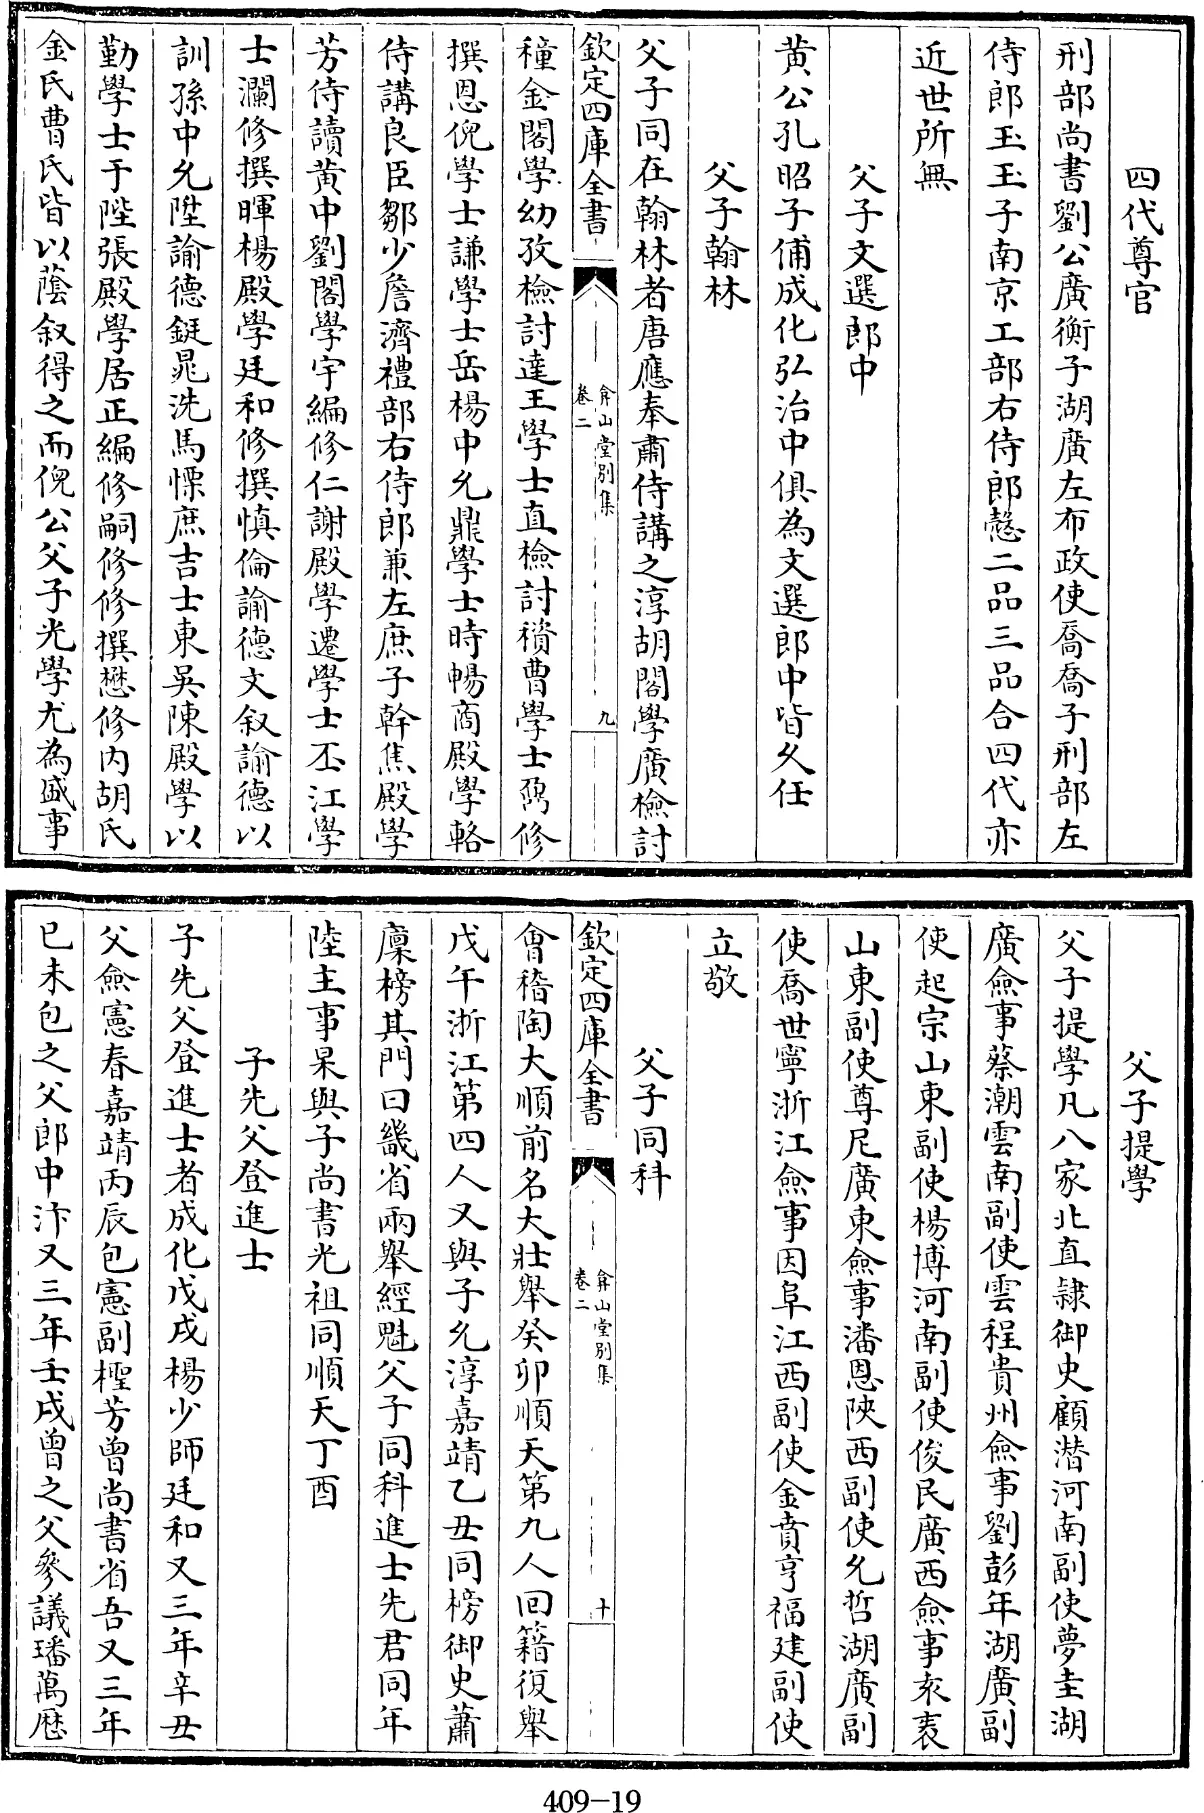 四代尊官
刑部尚書劉公廣衡子湖廣左布政使喬喬子刑部左
侍郎玉玉子南京工部右侍郎慤二品三品合四代亦
近世所無
父子文選郎中
黄公孔昭子俌成化弘治中俱為文選郎中皆久任
父子翰林
父子同在翰林者唐應奉肅侍講之淳胡閣學廣檢討
欽定四庫全書
弇山堂别集
卷二
九
穜金閣學幼孜檢討達王學士直檢討積曹學士鼐修
撰恩倪學士謙學士岳楊中允鼎學士時暢商殿學輅
侍講良臣鄒少詹濟禮部右侍郎兼左庶子幹焦殿學
芳侍讀黄中劉閣學宇編修仁謝殿學遷學士丕江學
士瀾修撰暉楊殿學廷和修撰慎倫諭德文叙諭德以
訓孫中允陞諭德鋌晁洗馬慄庶吉士東吳陳殿學以
勤學士于陛張殿學居正編修嗣修修撰懋修内胡氏
金氏曹氏皆以蔭叙得之而倪公父子光學尤為盛事
父子提學
父子提學凡八家北直隷御史顧潜河南副使夢圭湖
廣僉事蔡潮雲南副使雲程貴州僉事劉彭年湖廣副
使起宗山東副使楊博河南副使俊民廣西僉事袁袠
山東副使尊尼廣東僉事潘恩陜西副使允哲湖廣副
使喬世寧浙江僉事因阜江西副使金賁亨福建副使
立敬
父子同科
欽定四庫全書
弇山堂别集
卷二
十
會稽陶大順前名大壯舉癸卯順天第九人回籍復舉
戊午浙江第四人又與子允淳嘉靖乙丑同榜御史蕭
廪榜其門曰畿省兩舉經魁父子同科進士先君同年
陸主事杲與子尚書光祖同順天丁酉
子先父登進士
子先父登進士者成化戊戌楊少師廷和又三年辛丑
父僉憲春嘉靖丙辰包憲副檉芳曾尚書省吾又三年
已未包之父郎中汴又三年壬戌曾之父參議璠萬歴
409-19